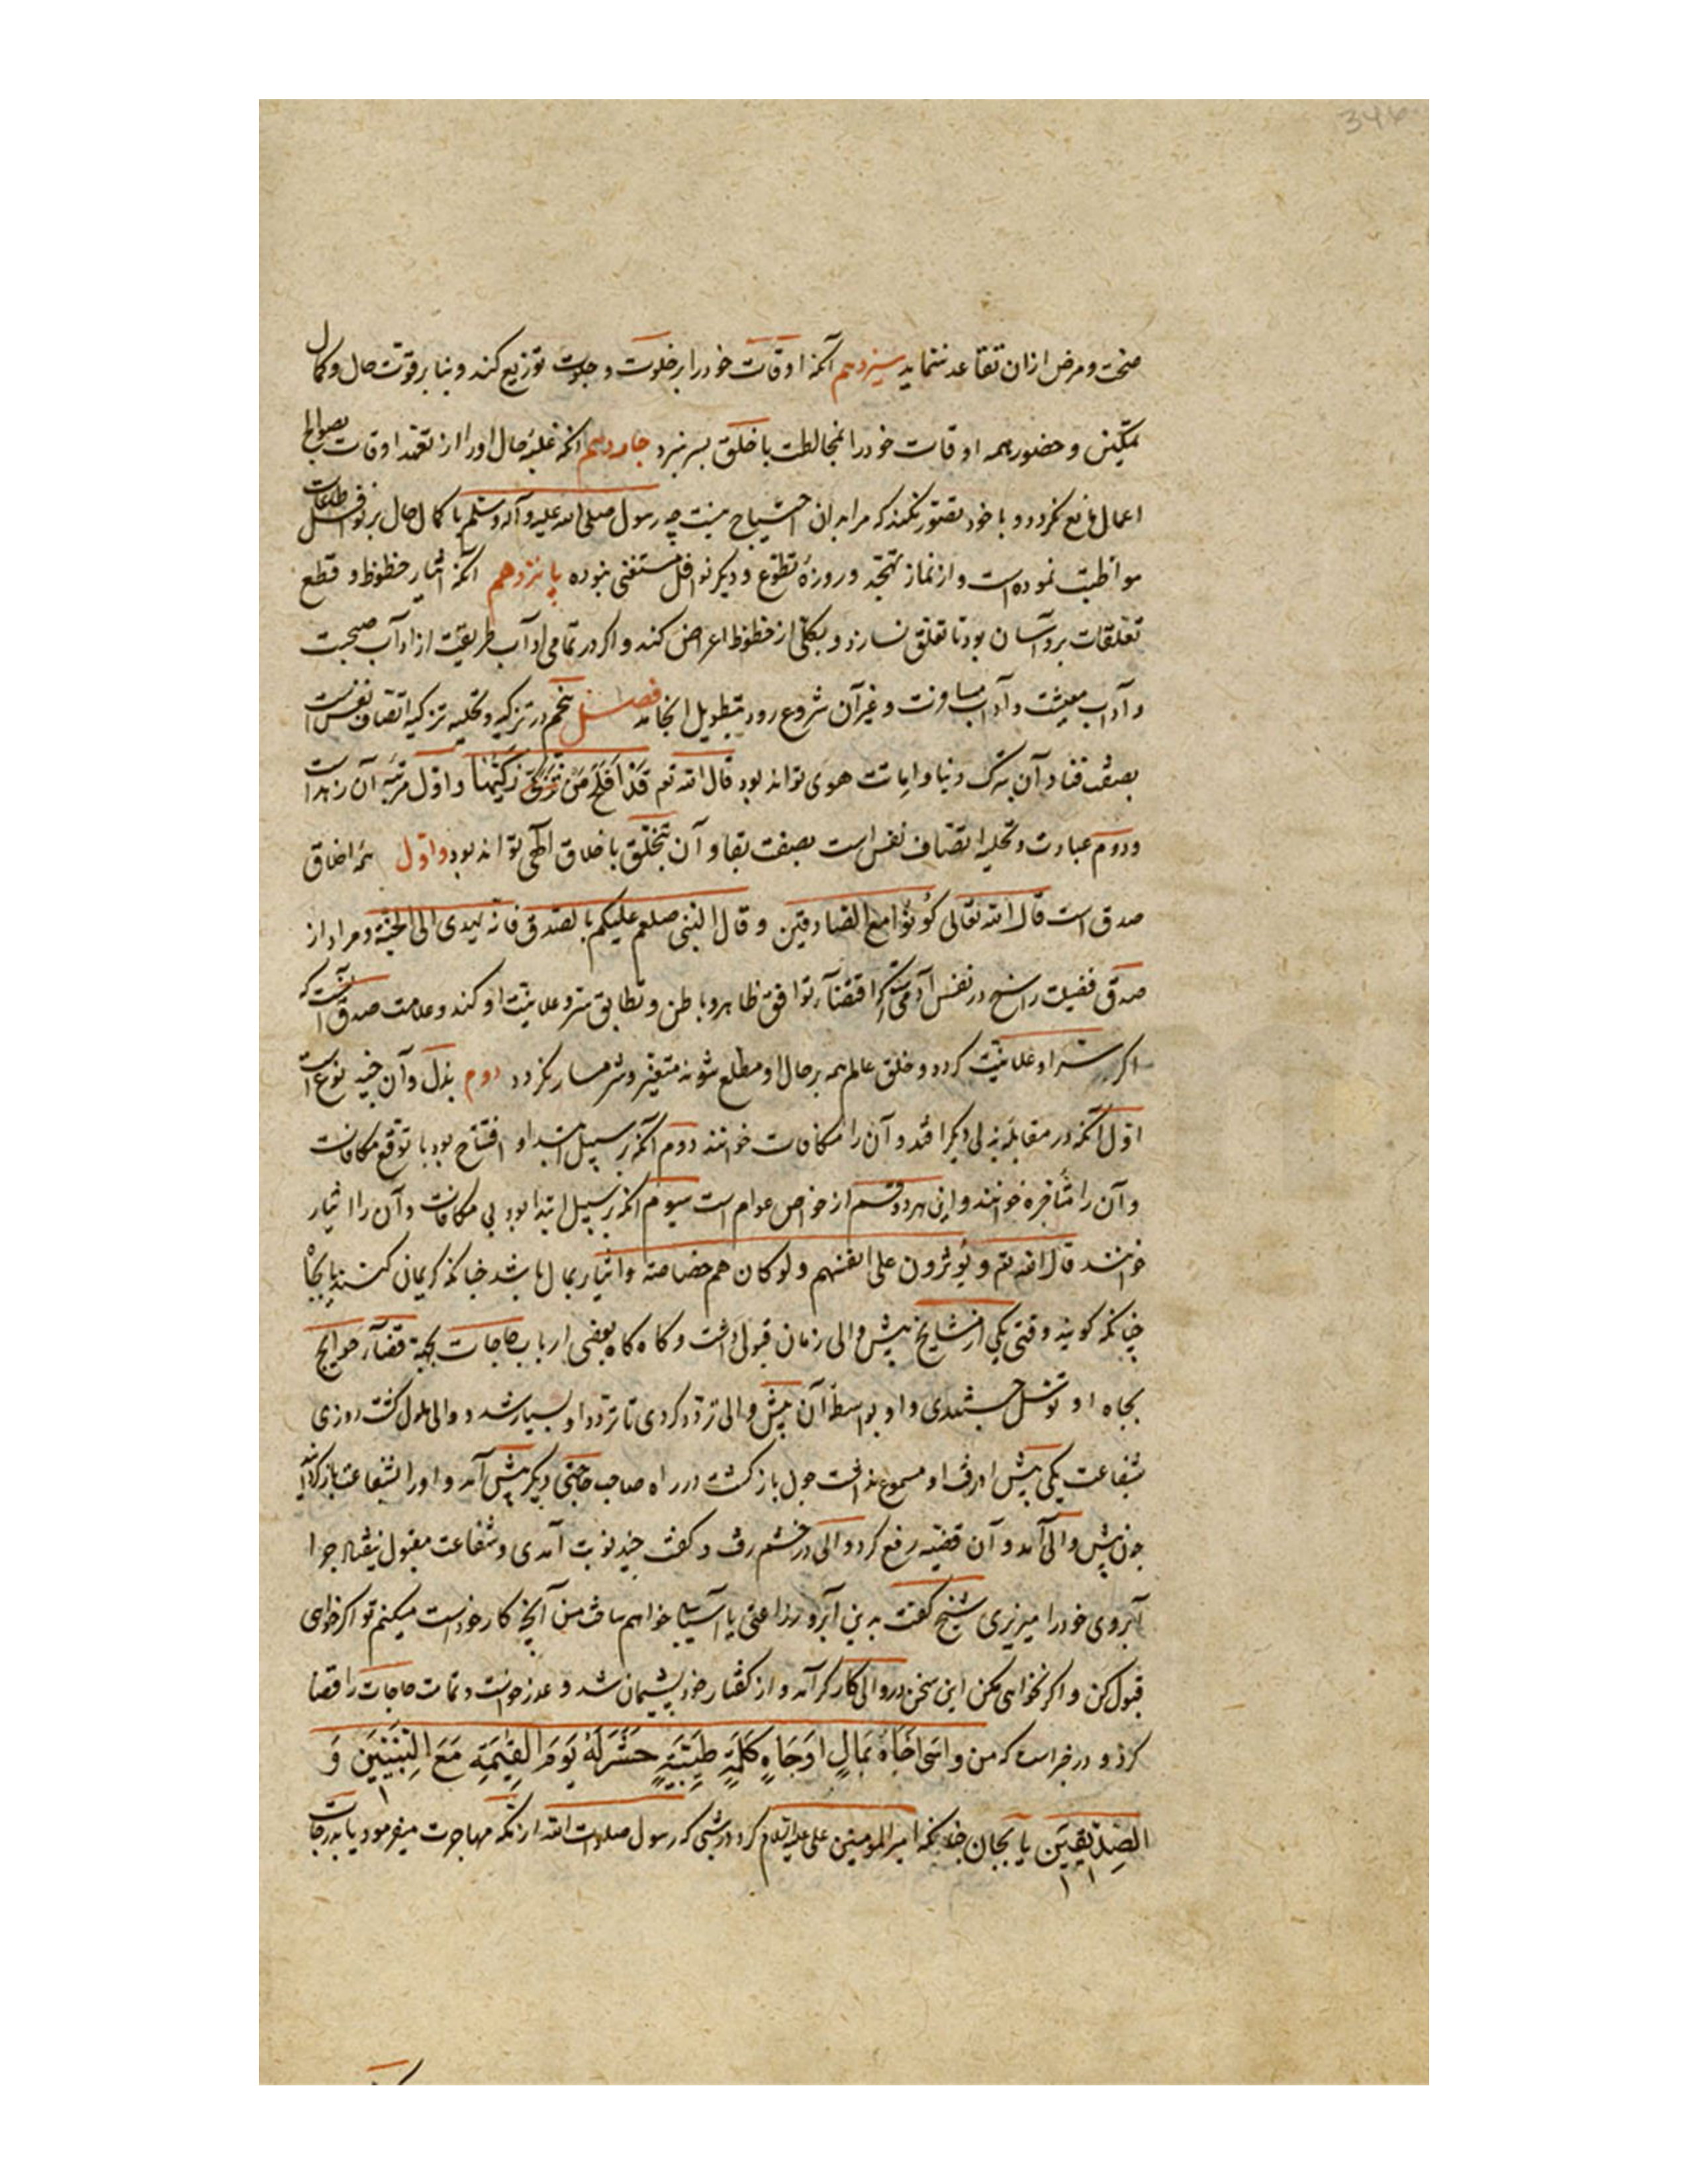 346
صحت و مرض ازان تقاعد ننماید سیزدهم آنکه اوقات خود را بر خلوت و جلوت توزیع کند و بنا بر قوت حال و کمال
تمکین و حضور همه اوقات خود را بمخالطت با خلق بسر نبرد چهاردهم آنکه غلبهٔ حال او را از تعهد اوقات بصوالح
اعمال مانع نکردد و با خود تصور نکند که مرا بدان احتیاج نیست چه رسول صلی الله علیه و آله و سلم با کمال حال بر نوافل طاعات
مواظبت نموده است و از نماز تهجد و روزهٔ تطوع و دیکر نوافل مستغنی نبوده پانزدهم آنکه ایثار حظوظ و قطع
تعلقات برو آسان بود تا تعلق نسازد و بکلی از حظوظ اعراض کند و اکر در تمامی آداب طریقت از آداب صحبت
و آداب معیشت و آداب مسافرت و غیر آن شروع رود بتطویل انجامد فصل پنجم در تزکیه و تحلیه تزکیه اتصاف نفس است
بصفت فنا و آن بترک دنیا و اماتت هوی تواند بود قال الله تع قد افلح من تزکی زکیها و اول مرتبه آن زهد است
و دوم عبادت و تحلیه اتصاف نفس است بصفت بقا و آن بتخلق باخلاق الهی تواند بود و اول همه اخلاق
صدق است قال الله تعالی کونوا مع الصادقین و قال النبی صلعم علیکم بالصدق فانه یهدی الی الجنة و مراد از
صدق فضیلت راسخ در نفس آدمی است که اقتضآء توافق ظاهر و باطن و تطابق سر و علانیت او کند و علامت صدق آنست که
اکر سر او علانیت کردد و خلق عالم همه بر حال او مطلع شوند متغیر و شرمسار نکردد دوم بذل و آن چند نوع است
اول آنکه در مقابلهٔ بذلی دیکر افتد و آن را مکافات خوانند دوم آنکه بر سبیل ابتدا و افتتاح بود با توقع مکافات
و آن را متاجره خوانند و این هر دو قسم از خواص عوام است سیوم آنکه بر سبیل ابتدا بود بی مکافات و آن را ایثار
خوانند قال الله تع و یؤثرون علی انفسهم و لو کان بهم خصاصة و ایثار بمال باشد چنانکه کریمان کنند یا بجاه
چنانکه کویند وقتی یکی از مشایخ پیش والی زمان قبولی داشت و کاه کاه بعضی ارباب حاجات بجهة قضآء حوایج
بجاه او توسل جستندی و او بواسطهٔ آن پیش والی تردد کردی تا تردد او بسیار شد و والی ملول کشت روزی
شفاعت یکی پیش او رفت و مسموع نداشت چون بازکشت در راه صاحب حاجتی دیکر پیش آمد و او را بشفاعت بازکردانید
چون پیش والی آمد و آن قضیه رفع کرد والی در خشم رفت و کفت چند نوبت آمدی و شفاعت مقبول نیفتاد چرا
آبروی خود را میریزی شیخ کفت بدین آبرو زراعتی یا آسیابی خواهم ساخت من آنچ کار خود است میکنم تو اکر خواهی
قبول کن و اکر نخواهی مکن این سخن در والی کارکر آمد و از کفتار خود پشیمان شد و عذر خواست و تمامت حاجات را قضا
کرد و در خبر است که من واسی اخاه بمال او جاه کلمة طیبة حشر له یوم القیٰمة مع النبیین و
الصدیقین یا بجان چنانکه امیر المومنین علی علیه السلام کرد در شبی که رسول صلوات الله از مکه مهاجرت میفرمود یا بدرجات